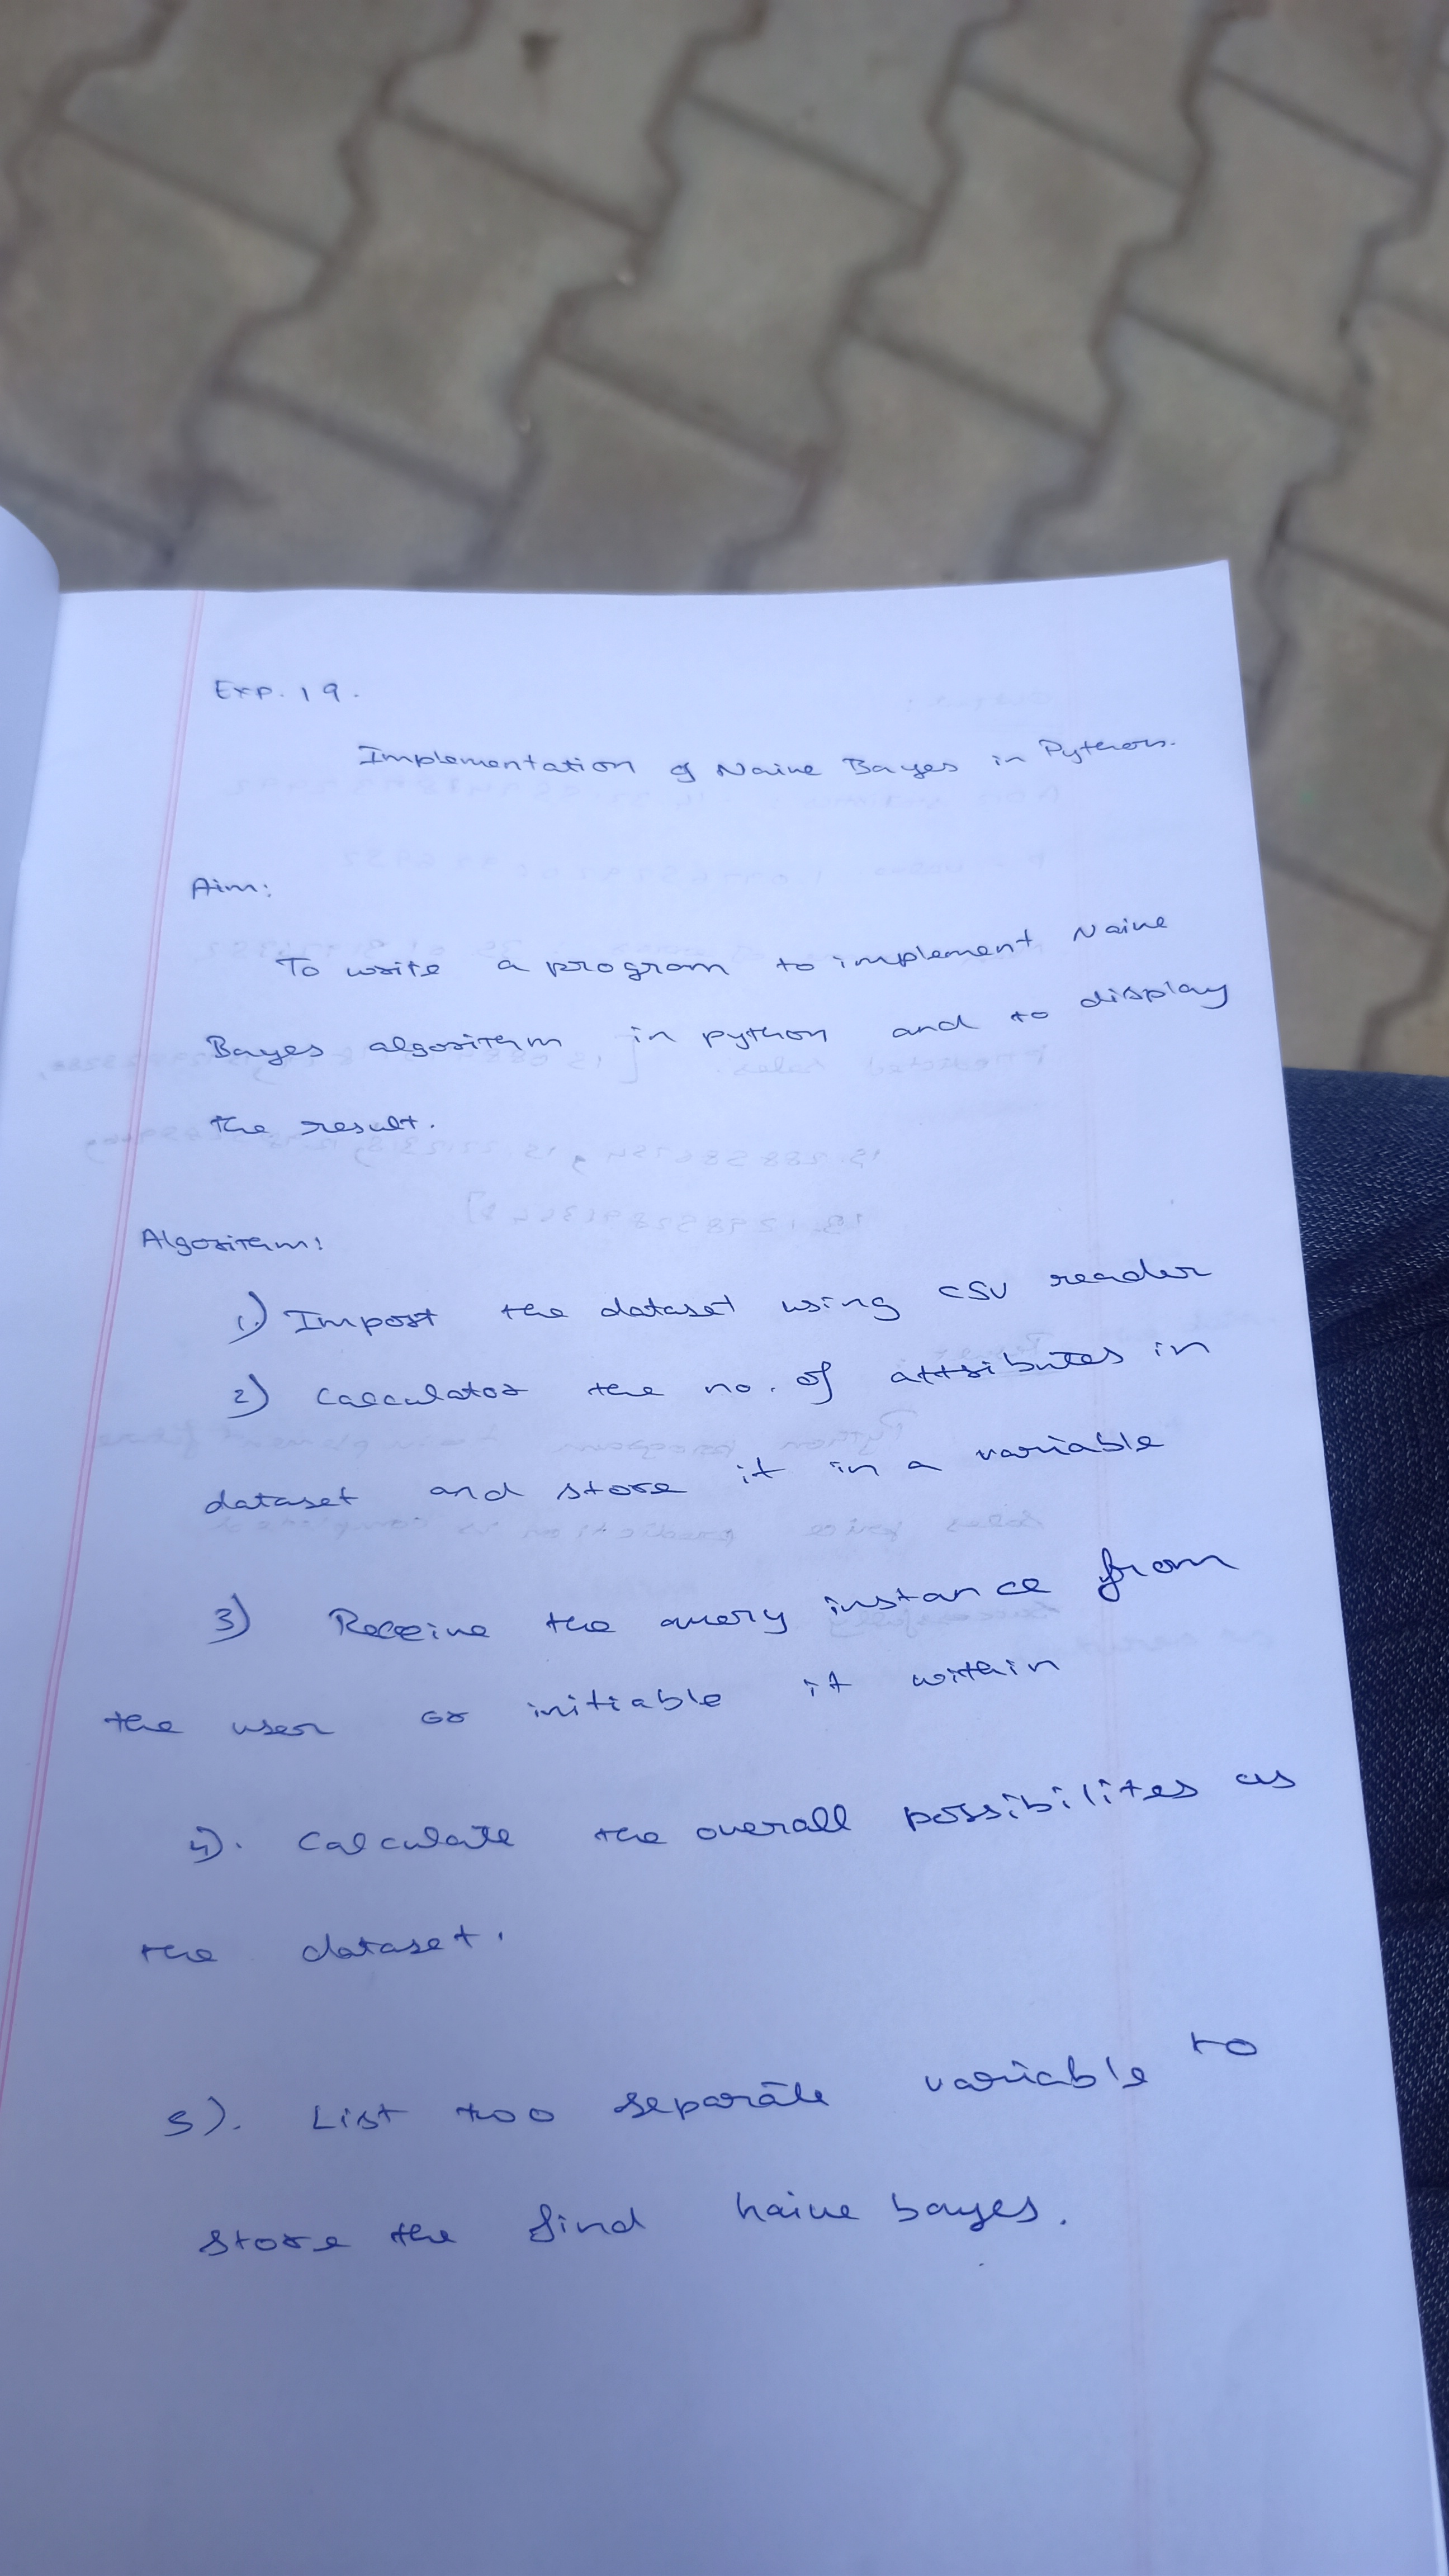 Exp. 19.
Implementation of Naive Bayes in Python.
Aim:
To write a program to implement Naive
Bayes algorithm in python and to display
the result.
Algorithm:
1.) Import the dataset using csv reader
2) Calculator the no. of attributes in
dataset and store it in a variable
3) Receive the query instance from
the user or initiable it within
4). Calculate the overall possibilites as
the dataset.
5). List two separate variable to
store the find naive bayes.